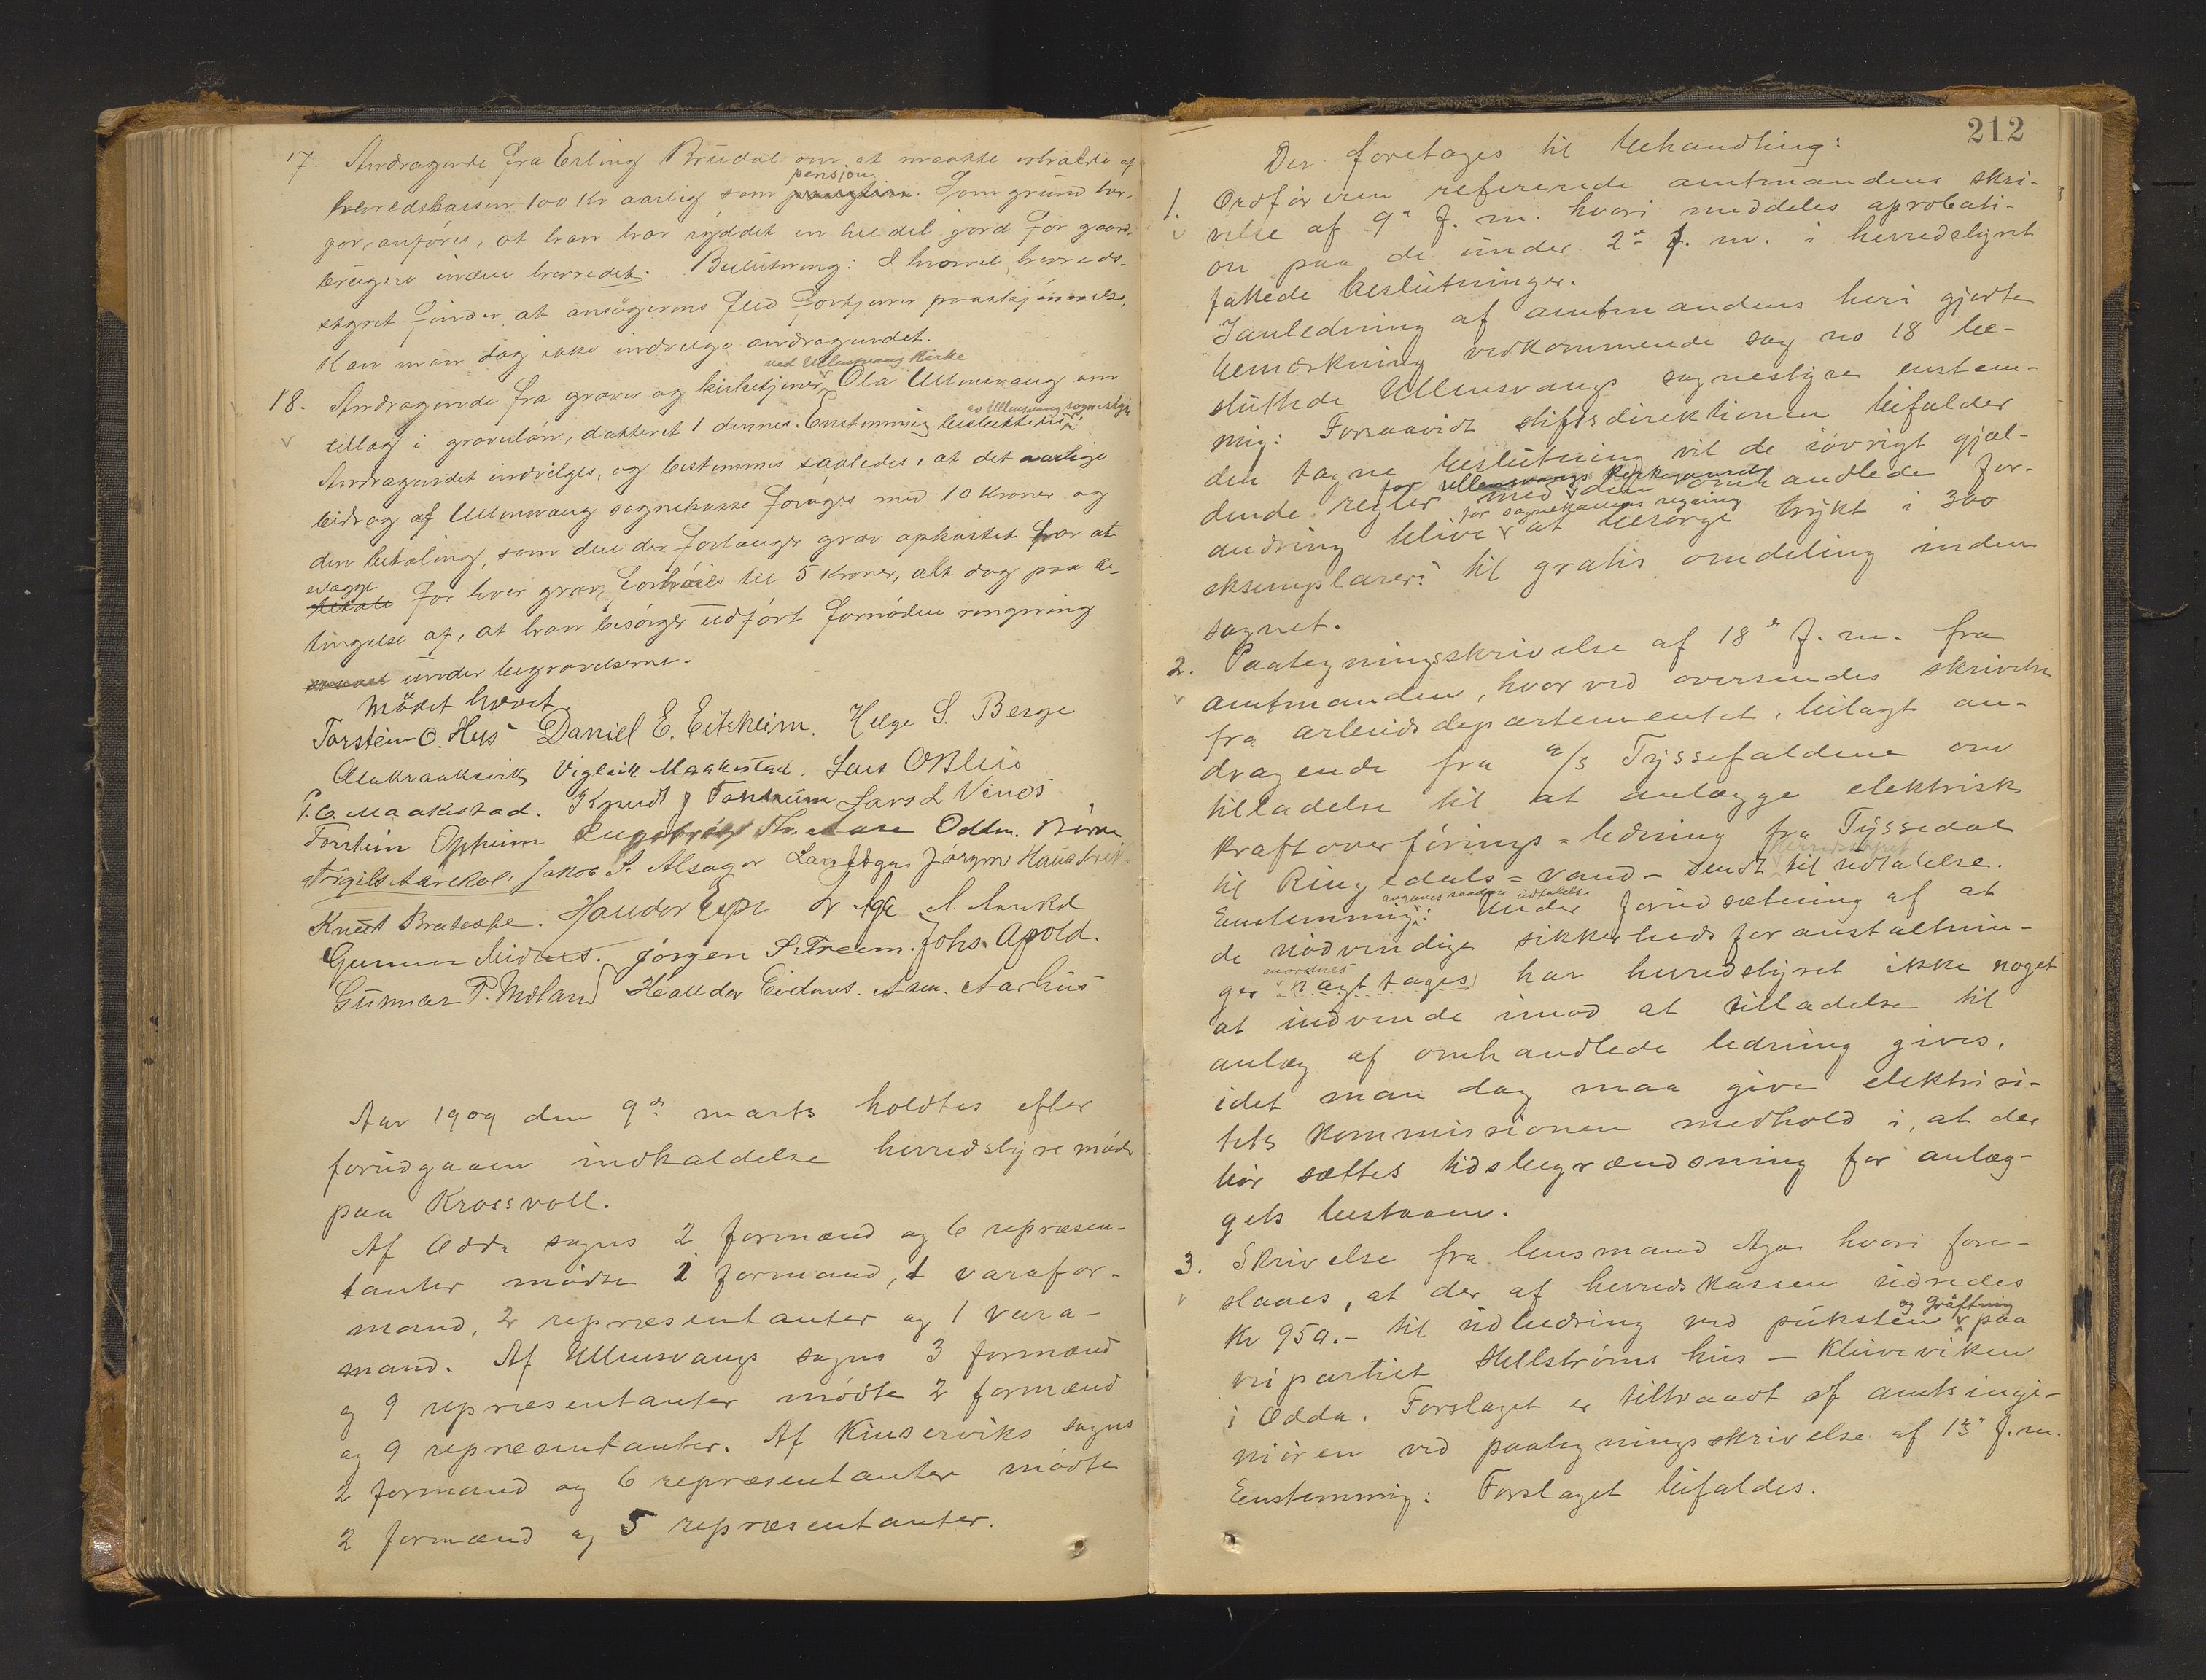 17. Andragende fra Erling Brüdal om at maatte erholde af
pensjon
herredskassen 100 Kr aarlig som Som grund her-
for, anføres, at han har ryddet en hel del jord for gaard-
brugere inden herredet. Beslutning: I hvorvel herreds-
styret finder, at ansøgerens flid fortjener paaskjønnelse,
kan man dog ikke indvilge andragendet.
ved Ullensvang Kirke
18. Andragende fra graver og kirketjener Ola Ullensvang om
av Ullensvang sognestyre
tillæg i graverløn, datteret 1 dennes. Enstemmig besluttedes:
Andragendet indvilges, og bestemmes saaledes, at det aarlige
bidrag af Ullensvang sognekasse forøges med 10 Kroner og
den betaling, som den der forlanger grav opkastet har at
erlægge
betale for hver grav, forhøies til 5 Kroner, alt dog paa be-
tingelse af, at han besørger udført fornøden ringning
under begravelserne.
Mødet hævet.
Torstein O. Hus Daniel E. Eitrheim. Helge S. Berge
Olakraaksvik Vigleik Maakestad. Lars OBleie
P. O. Maakestad. Knudt J Tokheim Lars L Vines
Torstein Opheim Oddm. Börve
Torgils Aarekol. Jakob S. Alsager Lars Aga Jørgen Haustveit
Knut Bratespe. Haldor Espe
Gunnar Midnes. Jørgen S. Freem. Johs. Apold.
Gunnar P. Måland Halldor Eidnes. Aam. Aarhus
Aar 1909 den 9de marts holdtes efter
forudgaaen indkaldelse herredsstyremøde
paa Krossvoll.
Af Odda sogns 2 formænd og 6 repræsen-
tanter mødte 1 formand, 1 varafor-
mand, 2 repræsentanter og 1 vara-
mand. Af Ullensvangs sogns 3 formænd
og 9 repræsentanter mødte 2 formænd
og 9 repræsentanter. Af Kinserviks sogns
2 formænd og 6 repræsentanter mødte
2 formænd og 5 repræsentanter.
212
Der foretages til behandling:
1. Ordføreren refererede amtmandens skri-
velse af 9de f. m. hvori meddeles aprobati-
on paa de under 2de f. m. i herredsstyret
fattede beslutninger.
I anledning af amtmandens heri gjorte
bemærkning vedkommende sag no 18 be-
sluttede Ullensvangs sognestyre enstem-
mig: Forsaavidt stiftsdirektionen bifalder
den tagne beslutning vil de iøvrigt gjæl-
for Ullensvangs Kirkesogn
dende regler med den omhandlede for-
for sognekassens regning
andring blive at besørge trykt i 300
eksemplarer til gratis omdeling inden
sognet.
2. Paategningsskrivelse af 18de f. m. fra
amtmanden, hvorved oversendes skrivelse
fra arbeidsdepartementet, bilagt an-
dragende fra a/s Tyssefaldene om
tilladelse til at anlægge elektrisk
kraftoverførings-ledning fra Tyssedal
herredsstyret
til Ringedals-vand - sendt til udtalelse.
saadan udtalelse
Enstemmig: Under forudsætning af at
de nødvendige sikkerhedsforanstaltnin-
anordnes
ger iagttages har herredsstyret ikke noget
at indvende imod at tilladelse til
anlæg af omhandlede ledning gives,
idet man dog maa give elektrisi-
tets kommissionen medhold i, at der
bør sættes tidsbegrændsning for anlæg-
gets bestaaen.
3. Skrivelse fra lensmand Aga hvori fore-
slaaes, at der af herredskassen udredes
og grøftning
Kr 950.- til udbedring ved pukstén paa
veipartiet Hellstrøms hus - Kleiveviken
i Odda. Forslaget er tiltraadt af amtsinge-
niøren ved paategningsskrivelse af f. m.
Enstemmig: Forslaget bifaldes.